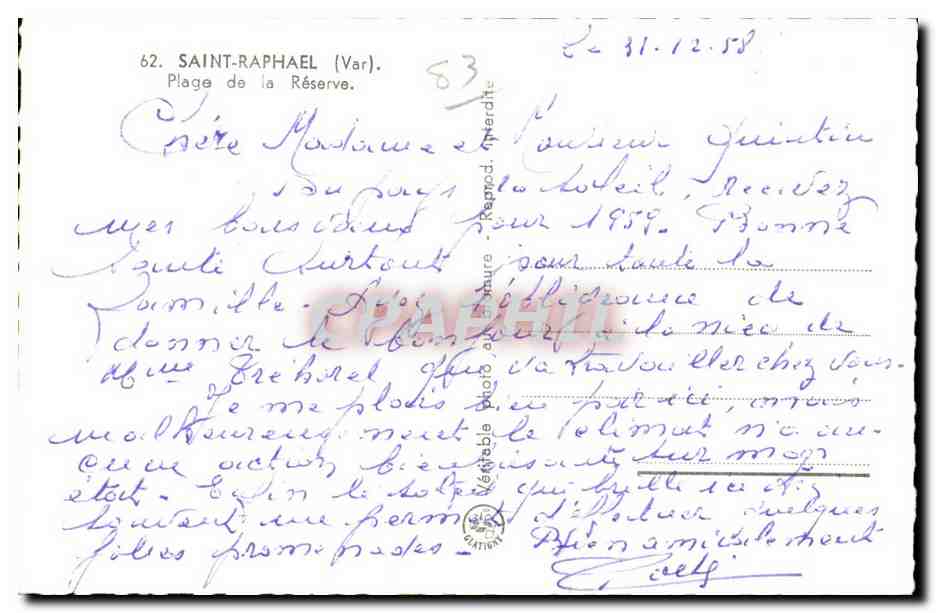 Le 31-12-58
62. SAINT-RAPHAEL (Var).
Plage de la Réserve.
83
Chère Madame et Monsieur Quintin
Du pays du soleil, recevez
mes bons voeux pour 1959. Bonne
santé surtout pour toute la
famille. Ayez l'obligeance de
donner le bonjour à la nièce de
Mme Tréhorel que va travailler chez vous.
Je me plais bien par ici, mais
malheureusement le climat n'a au-
cune action bienfaisante sur mon
état. Enfin le soleil qui brille ici
souvent me permet d'effectuer quelques
jolies promenades. Bien amicalement
Véritable photo au bromure - Reprod. interdite
GLATIGNY
CPAPHIL